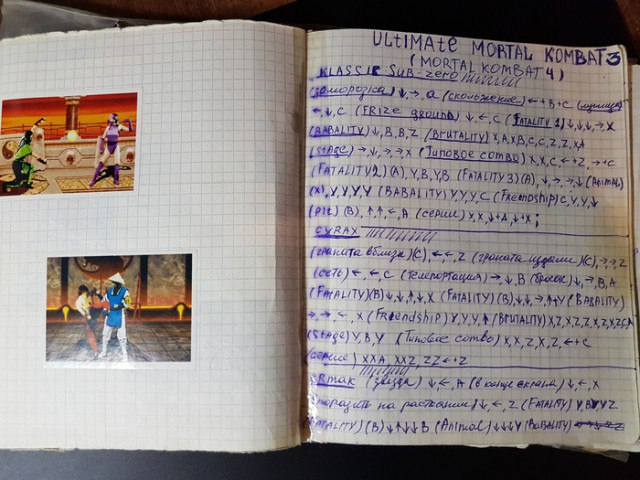 ULTIMATE MORTAL KOMBAT 3
(MORTAL KOMBAT 4)
KLASSIC SUB-ZERO
(Заморозка) ↓,→, A (скольжение) ← + B + C
←,↓,C (FRIZE GROUND) ↓,←,C (FATALITY 1) ↓,↓,↓,→,X
(BABALITY) ↓, B, B, Z (BRUTALITY) X,A,X,B,C,C,Z,Z,X,A
(STAGE) →,↓,→,→,X (Типовое combo) X,X,C,←+Z,→+C
(FATALITY 2) (A), Y, B, Y, B (FATALITY 3) (A), ↓,→,→,↓ (ANIMAL)
(X), Y,Y,Y,Y (BABALITY) Y,Y,Y,C (Friendship) C,Y,Y,↓
(Pit) (B), ↑,↑,←,A (серии) X,X,↓+A,↓+X;
CYRAX
(граната вблизи) (C), ←,←,Z (граната издали) (C), →,→,Z
(сеть) ←,←,C (Телепортация) →,↓,B (бросок) ↓,→,B,A
(FATALITY) (B) ↓,↓,↑,↓,X (FATALITY) (B), ↓,↓,→,↑+Y (BABALITY)
→,→,←,X (Friendship) Y,Y,Y,↑ (BRUTALITY) X,Z,X,Z,Z,X,Z,X,Z,C,A
(Stage) Y,B,Y (Типовое combo) X,X,Z,X,Z,←+C
(серие) XXA, XXZ, ZZ←+Z
(звезда) ↓,←,A (в конце экрана) ↓,←,X
на растоянии) ↓,←,Z (FATALITY)
FATALITY) (B) ↓↑↓↓B (Animal) ↓↓↓Y (BABALITY)